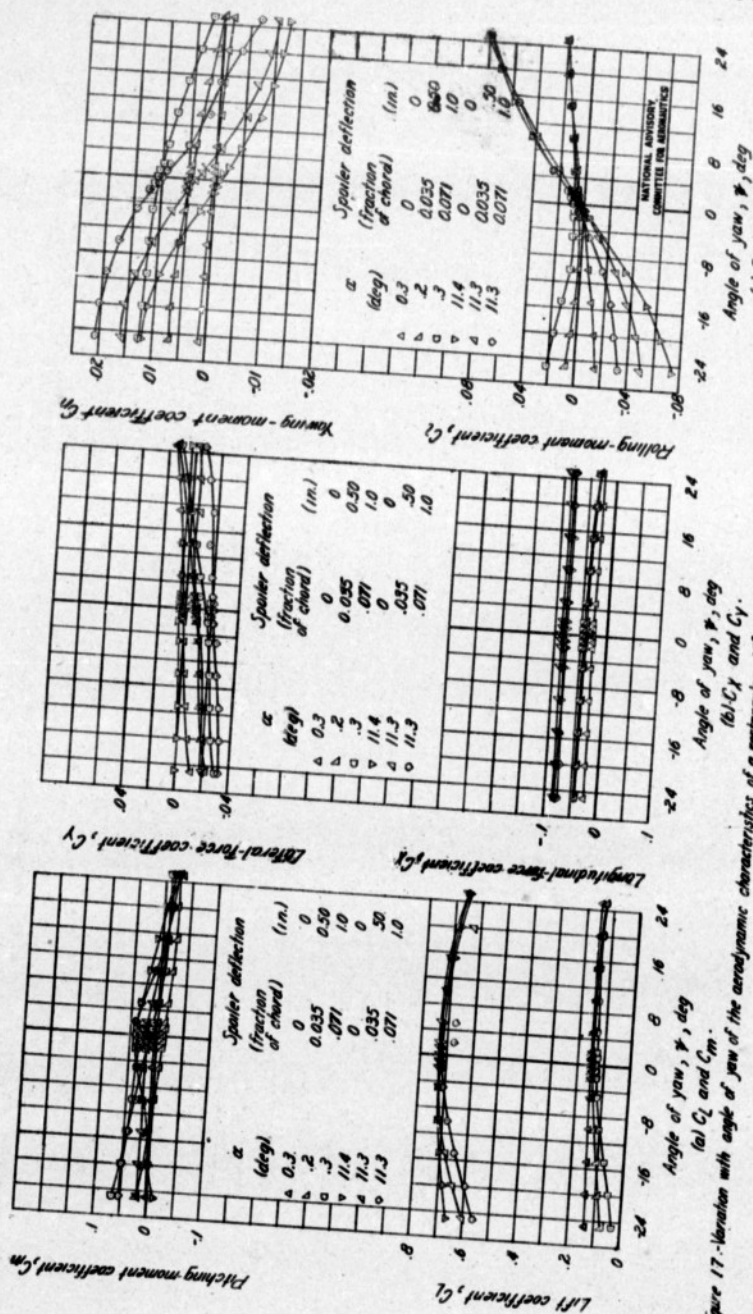 Pitching-moment coefficient, Cm
.1
0
α
(deg)
Spoiler deflection
(fraction of chord)
(in.)
0.3 0 0
.2 0.035 0.50
.3 .071 1.0
11.4 0 0
11.3 .035 .50
11.3 .071 1.0
Lift coefficient, CL
.8
.6
.4
.2
0
-24 -16 -8 0 8 16 24
Angle of yaw, ψ, deg
(a) CL and Cm.
Lateral-force coefficient, CY
.04
0
-.04
α
(deg)
Spoiler deflection
(fraction of chord)
(in.)
0.3 0 0
.2 0.035 0.50
.3 .071 1.0
11.4 0 0
11.3 .035 .50
11.3 .071 1.0
Longitudinal-force coefficient, CX
-.1
0
.1
-24 -16 -8 0 8 16 24
Angle of yaw, ψ, deg
(b) CX and CY.
Yawing-moment coefficient Cn
.02
.01
0
-.01
-.02
α
(deg)
Spoiler deflection
(fraction of chord)
(in.)
0.3 0 0
.2 0.035 0.50
.3 0.071 1.0
11.4 0 0
11.3 0.035 .50
11.3 0.071 1.0
Rolling-moment coefficient, Cl
.08
.04
0
-.04
-.08
NATIONAL ADVISORY
COMMITTEE FOR AERONAUTICS
-24 -16 -8 0 8 16 24
Angle of yaw, ψ, deg
ure 17.-Variation with angle of yaw of the aerodynamic characteristics of a